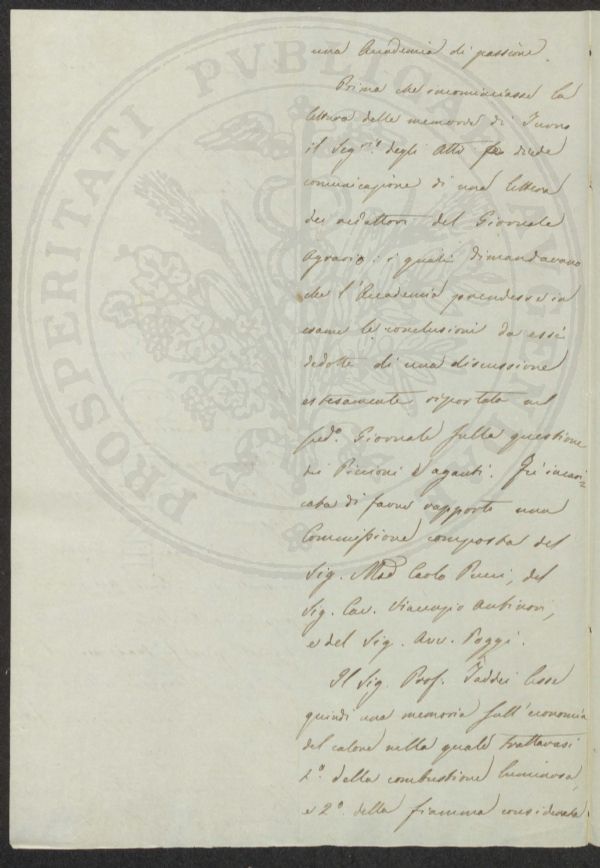 una Accademia di passione.
Prima che incominciasse la
lettura delle memorie di Turno
il Segr.º degli Atti diede
comunicazione di una lettera
dei redattori del Giornale
Agrario: i quali dimandavano
che l'Accademia prendesse in
esame le conclusioni da essi
dedotte di una discussione
estesamente riportata nel
sud.º Giornale sulla questione
dei Piccioni vaganti. Fu incari-
cata di farne rapporto una
Commissione composta del
Sig. Mad Carlo Pucci, del
Sig. Cav. Vincenzio Antinori,
e del Sig. Avv. Poggi.
Il Sig. Prof. Taddei lesse
quindi una memoria sull'economia
del calore nella quale trattavasi
1.º della combustione luminosa,
e 2.º della fiamma considerata
PROSPERITATI PVBLICAE AVGENDAE